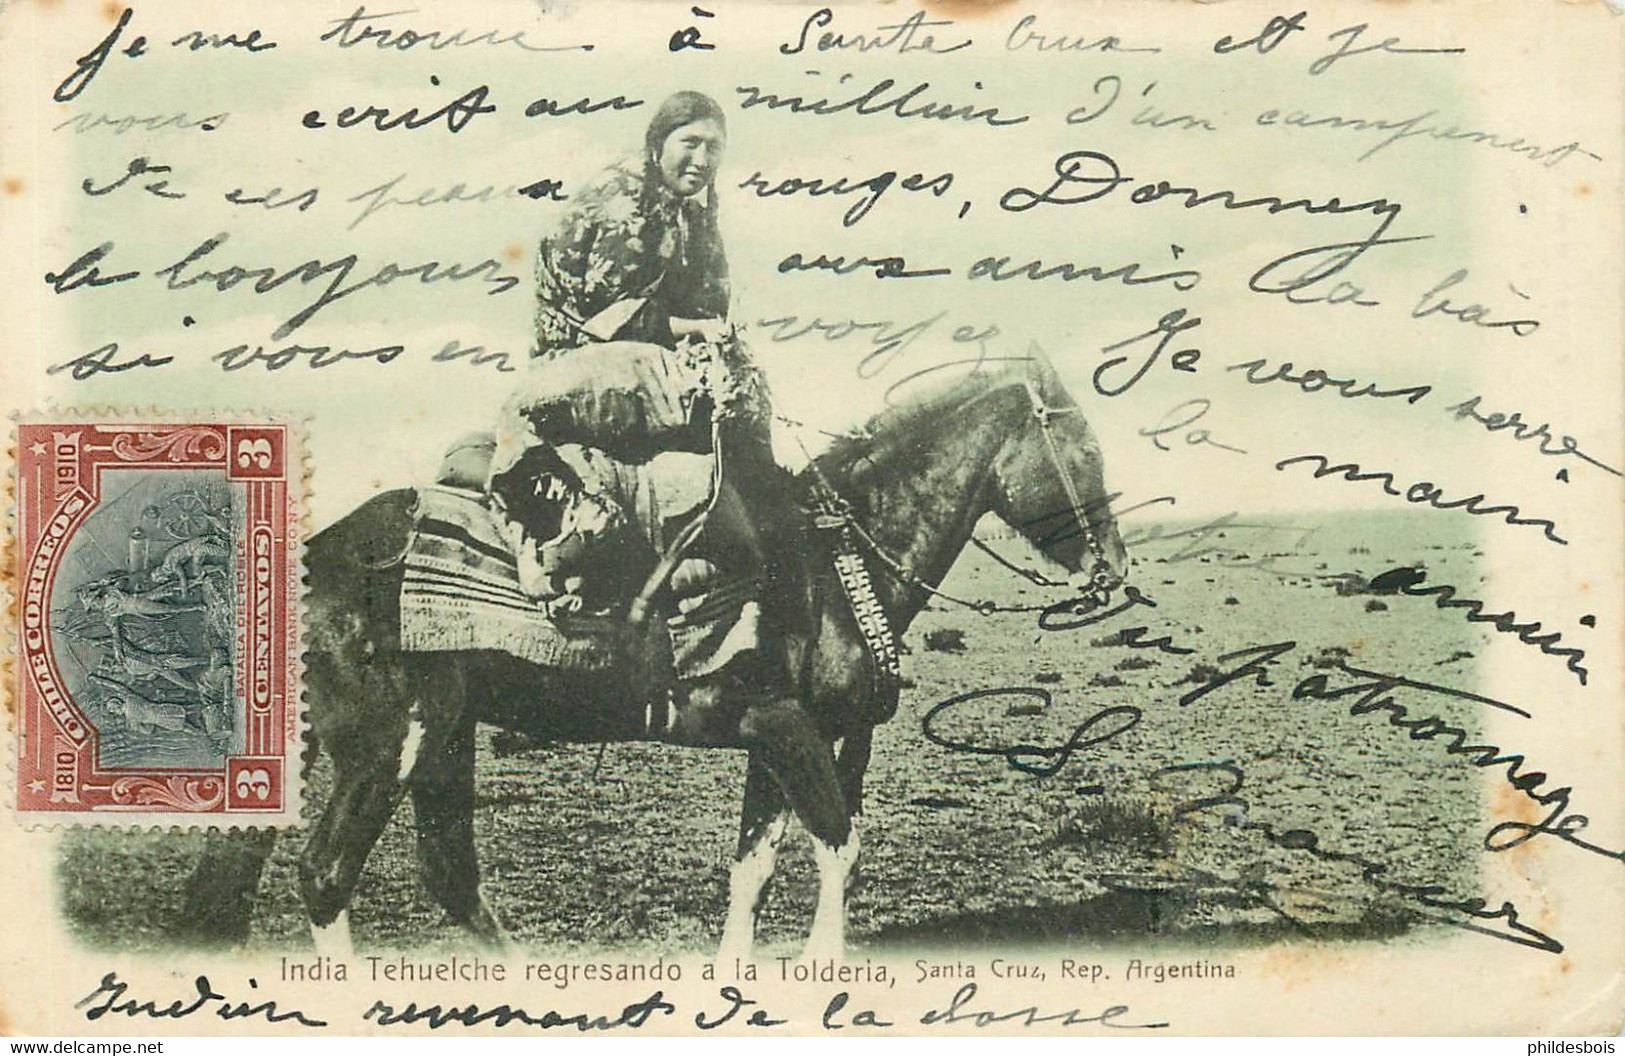 Je me trouve à Sante Crux et Je
vous ecrit au millieu d'un campement
de ces peaux rouges, Donney
le bonjour aux amis La bàs
si vous en voyez Je vous serre
la main
Vot ancien
du patronage
C S.
Indien revenant de la chasse
India Tehuelche regresando a la Tolderia, Santa Cruz, Rep. Argentina
CHILE CORREOS
1810 1910
3 CENTAVOS 3
BATALLA DEL ROBLE
AMERICAN BANK NOTE CO. N.Y.
delcampe.net
phildesbois